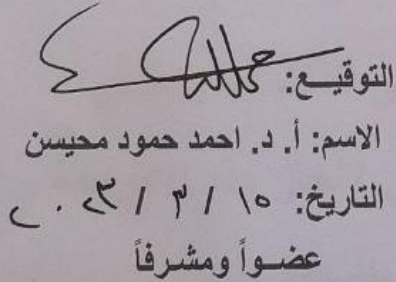 التوقيـع:
الاسم: أ. د. احمد حمود محيسن
التاريخ: ١٥ / ٣ / ٢٠٢٣
عضـواً ومشرفاً